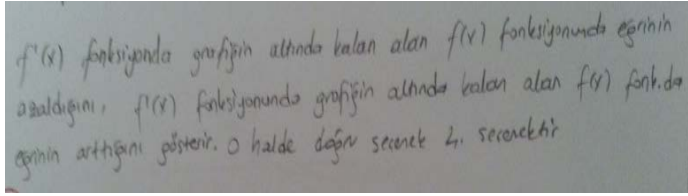 f'(x) fonksiyonda grafiğin altında kalan alan f(x) fonksiyonunda eğrinin
azaldığını, f'(x) fonksiyonunda grafiğin altında kalan alan f(x) fonk.da
eğrinin arttığını gösterir. O halde doğru seçenek 4. seçenektir